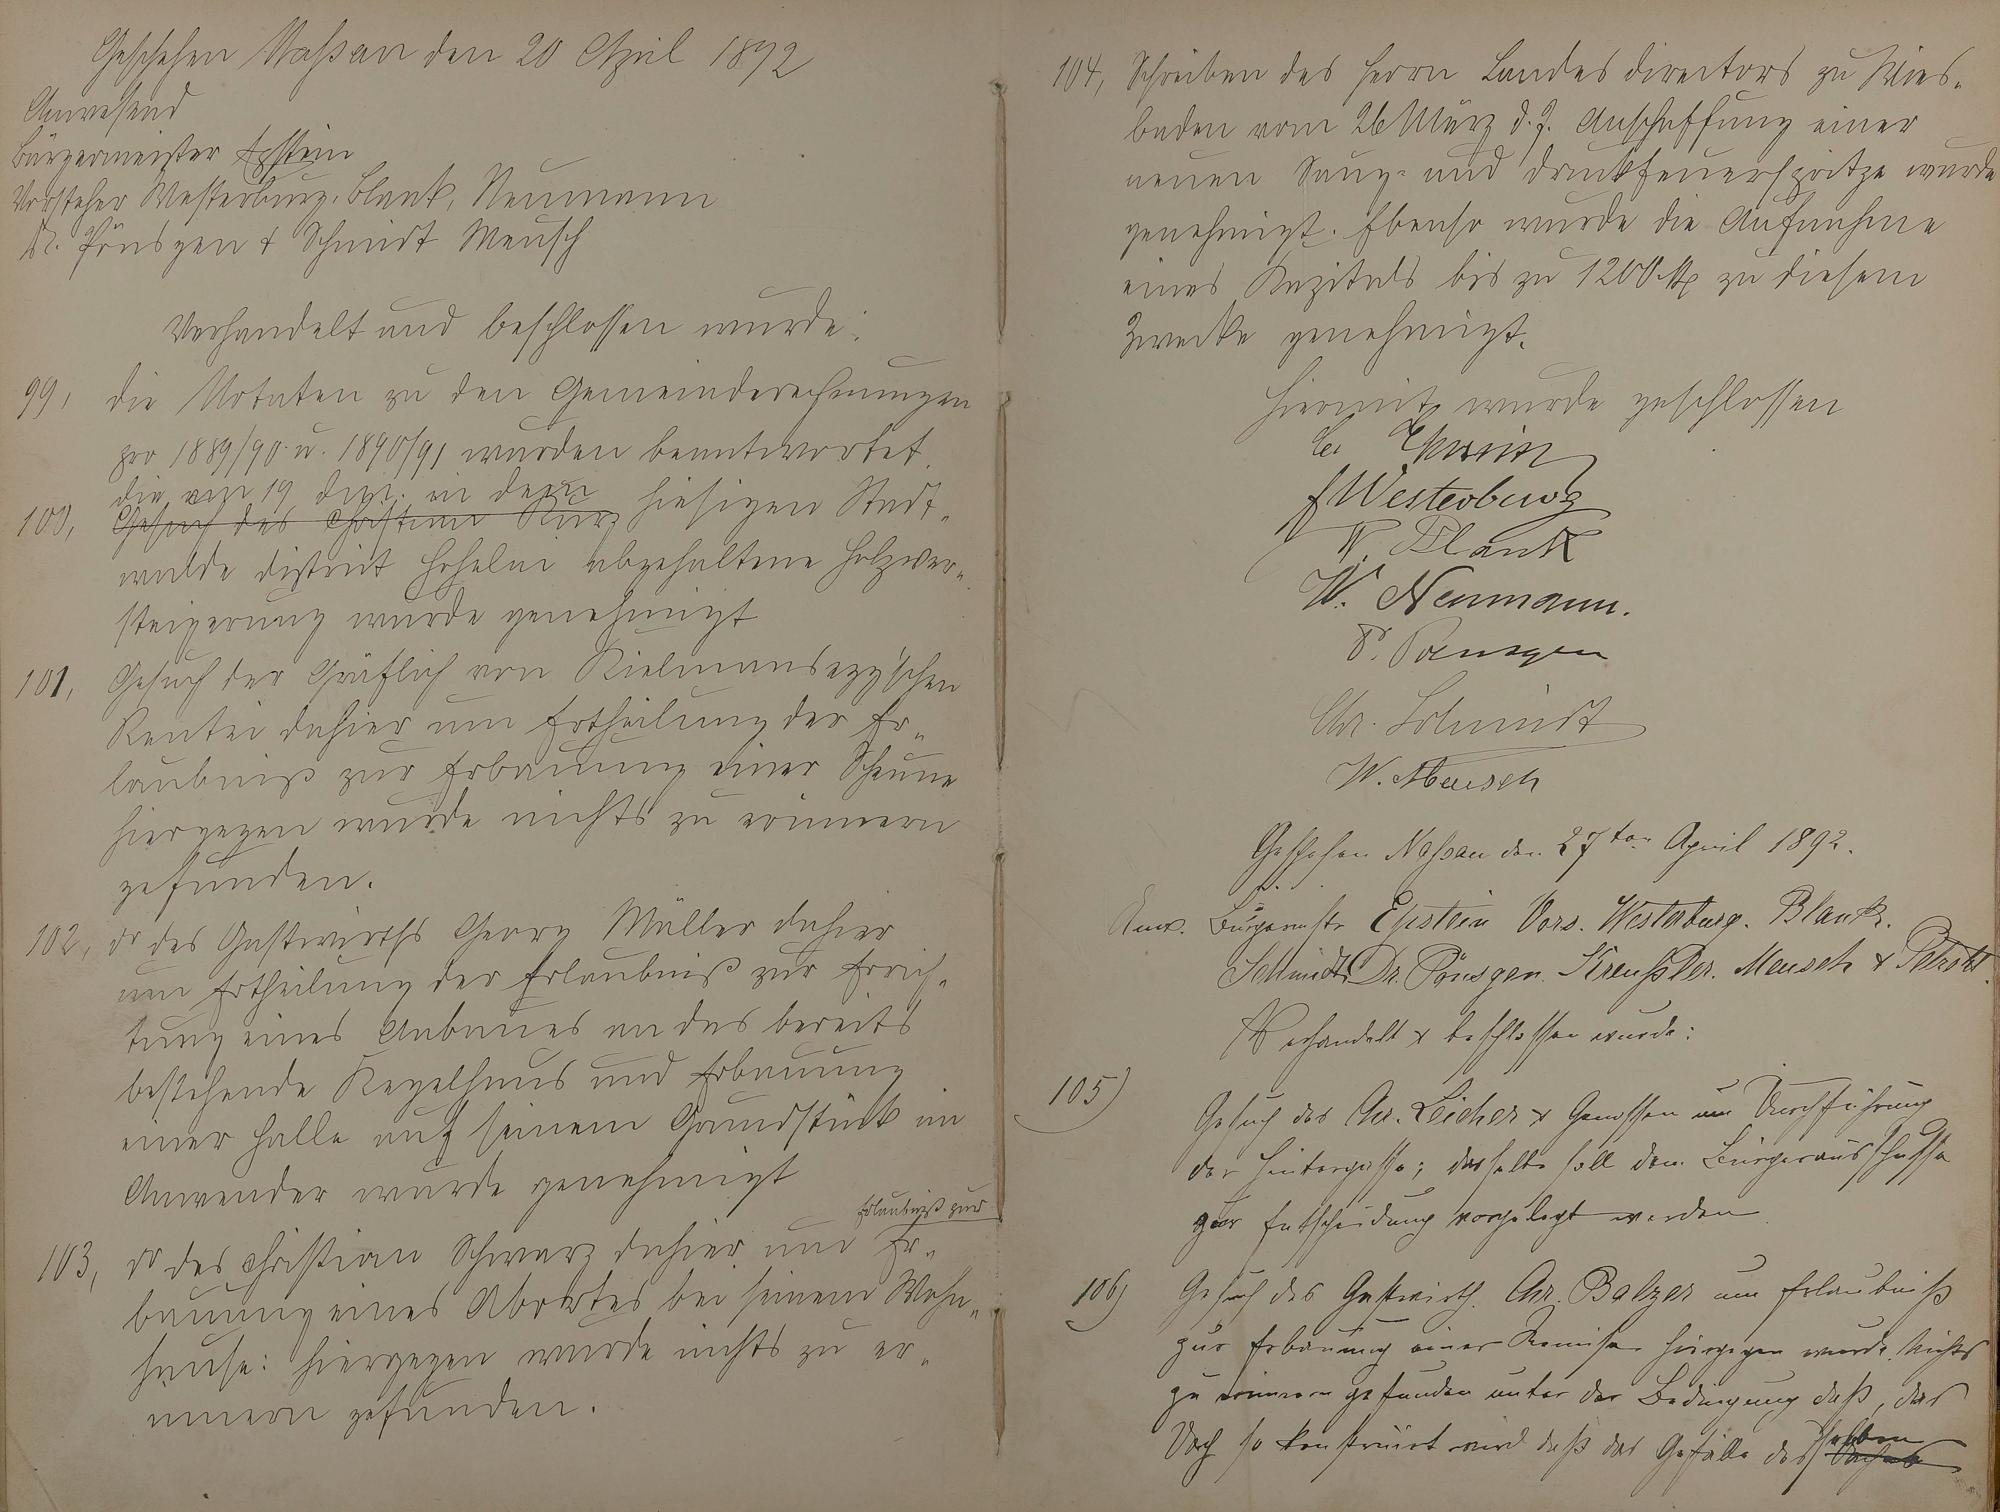 Geschehen Nassau den 20 April 1892
Anwesend
Bürgermeister Epstein
Vorsteher Westerburg, Blank, Neumann
Dr. Pönsgen & Schmidt Meusch
Verhandelt und beschlossen wurde:
99, die Notaten zu den Gemeinderechnungen
pro 1889/90 u. 1890/91 wurden beantwortet.
die am 19 in dem
100, Gesuch des Christian Kurz hiesigen Stadt-
walde District Hohelai abgehaltene Holzver-
steigerung wurde genehmigt
101, Gesuch der Gräflich von Kielmansegg'schen
Rentei dahier um Ertheilung der Er-
laubniß zur Erbauung einer Scheune
hiergegen wurde nichts zu erinnern
gefunden.
102, do des Gastwirths Georg Müller dahier
um Ertheilung der Erlaubniß zur Errich-
tung eines Anbaues an das bereits
bestehende Kegelhaus und Erbauung
einer Halle auf seinem Grundstück im
Anwender wurde genehmigt
Erlaubniß zur
103, do des Christian Schwarz dahier um Er-
bauung eines Abortes bei seinem Wohn-
hause: hiergegen wurde nichts zu er-
innern gefunden.
104, Schreiben des Herrn Landes directors zu Wies-
baden vom 26 März d. J. Anschaffung einer
neuen Saug- und Druckfeuerspritze wurde
genehmigt. Ebenso wurde die Aufnahme
eines Kapitals bis zu 1200 M zu diesem
Zwecke genehmigt.
Hiermit wurde geschlossen
Epstein
F Westerburg
W. Blank
W. Neumann.
Dr. Poensgen
Chr. Schmidt
W. Meusch
Geschehen Nassau den 27ten April 1892.
Anw. Bürgermstr Epstein Vors. Westerburg. Blank.
Schmidt, Dr. Pönsgen. Kreußler. Meusch &
Verhandelt & beschlossen wurde:
105) Gesuch des Chr. Leicher & Genossen um Durchführung
der Hintergasse; dasselbe soll dem Bürgerausschusse
zur Entscheidung vorgelegt werden
106) Gesuch des Gastwirth. Chr. Balzer um Erlaubniß
zur Erbauung einer Remise hiergegen wurde nichts
zu erinnern gefunden unter der Bedingung daß, das
Dach so konstruirt wird daß das Gefälle desselben Daches